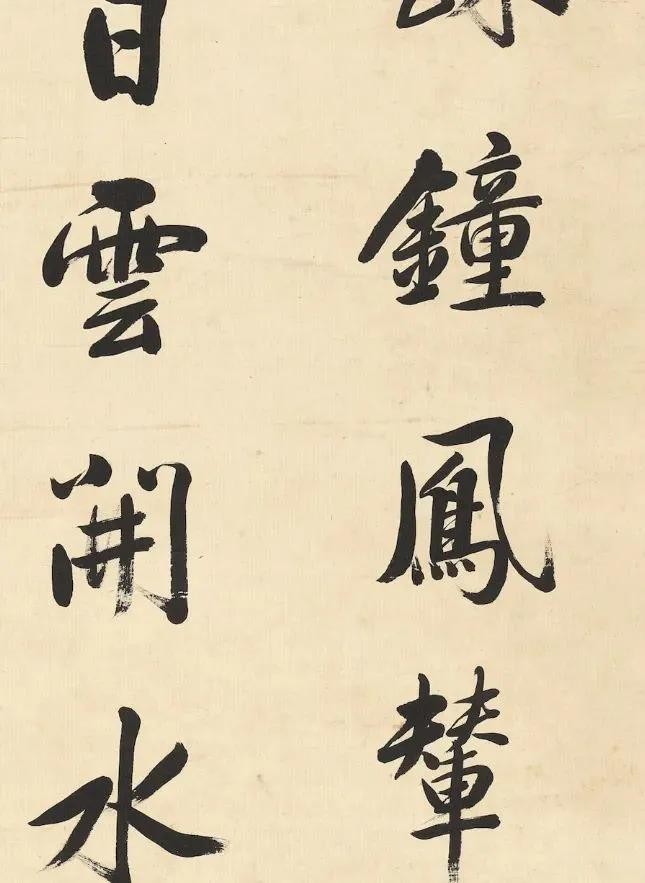 鐘鳳輦
日雲開水